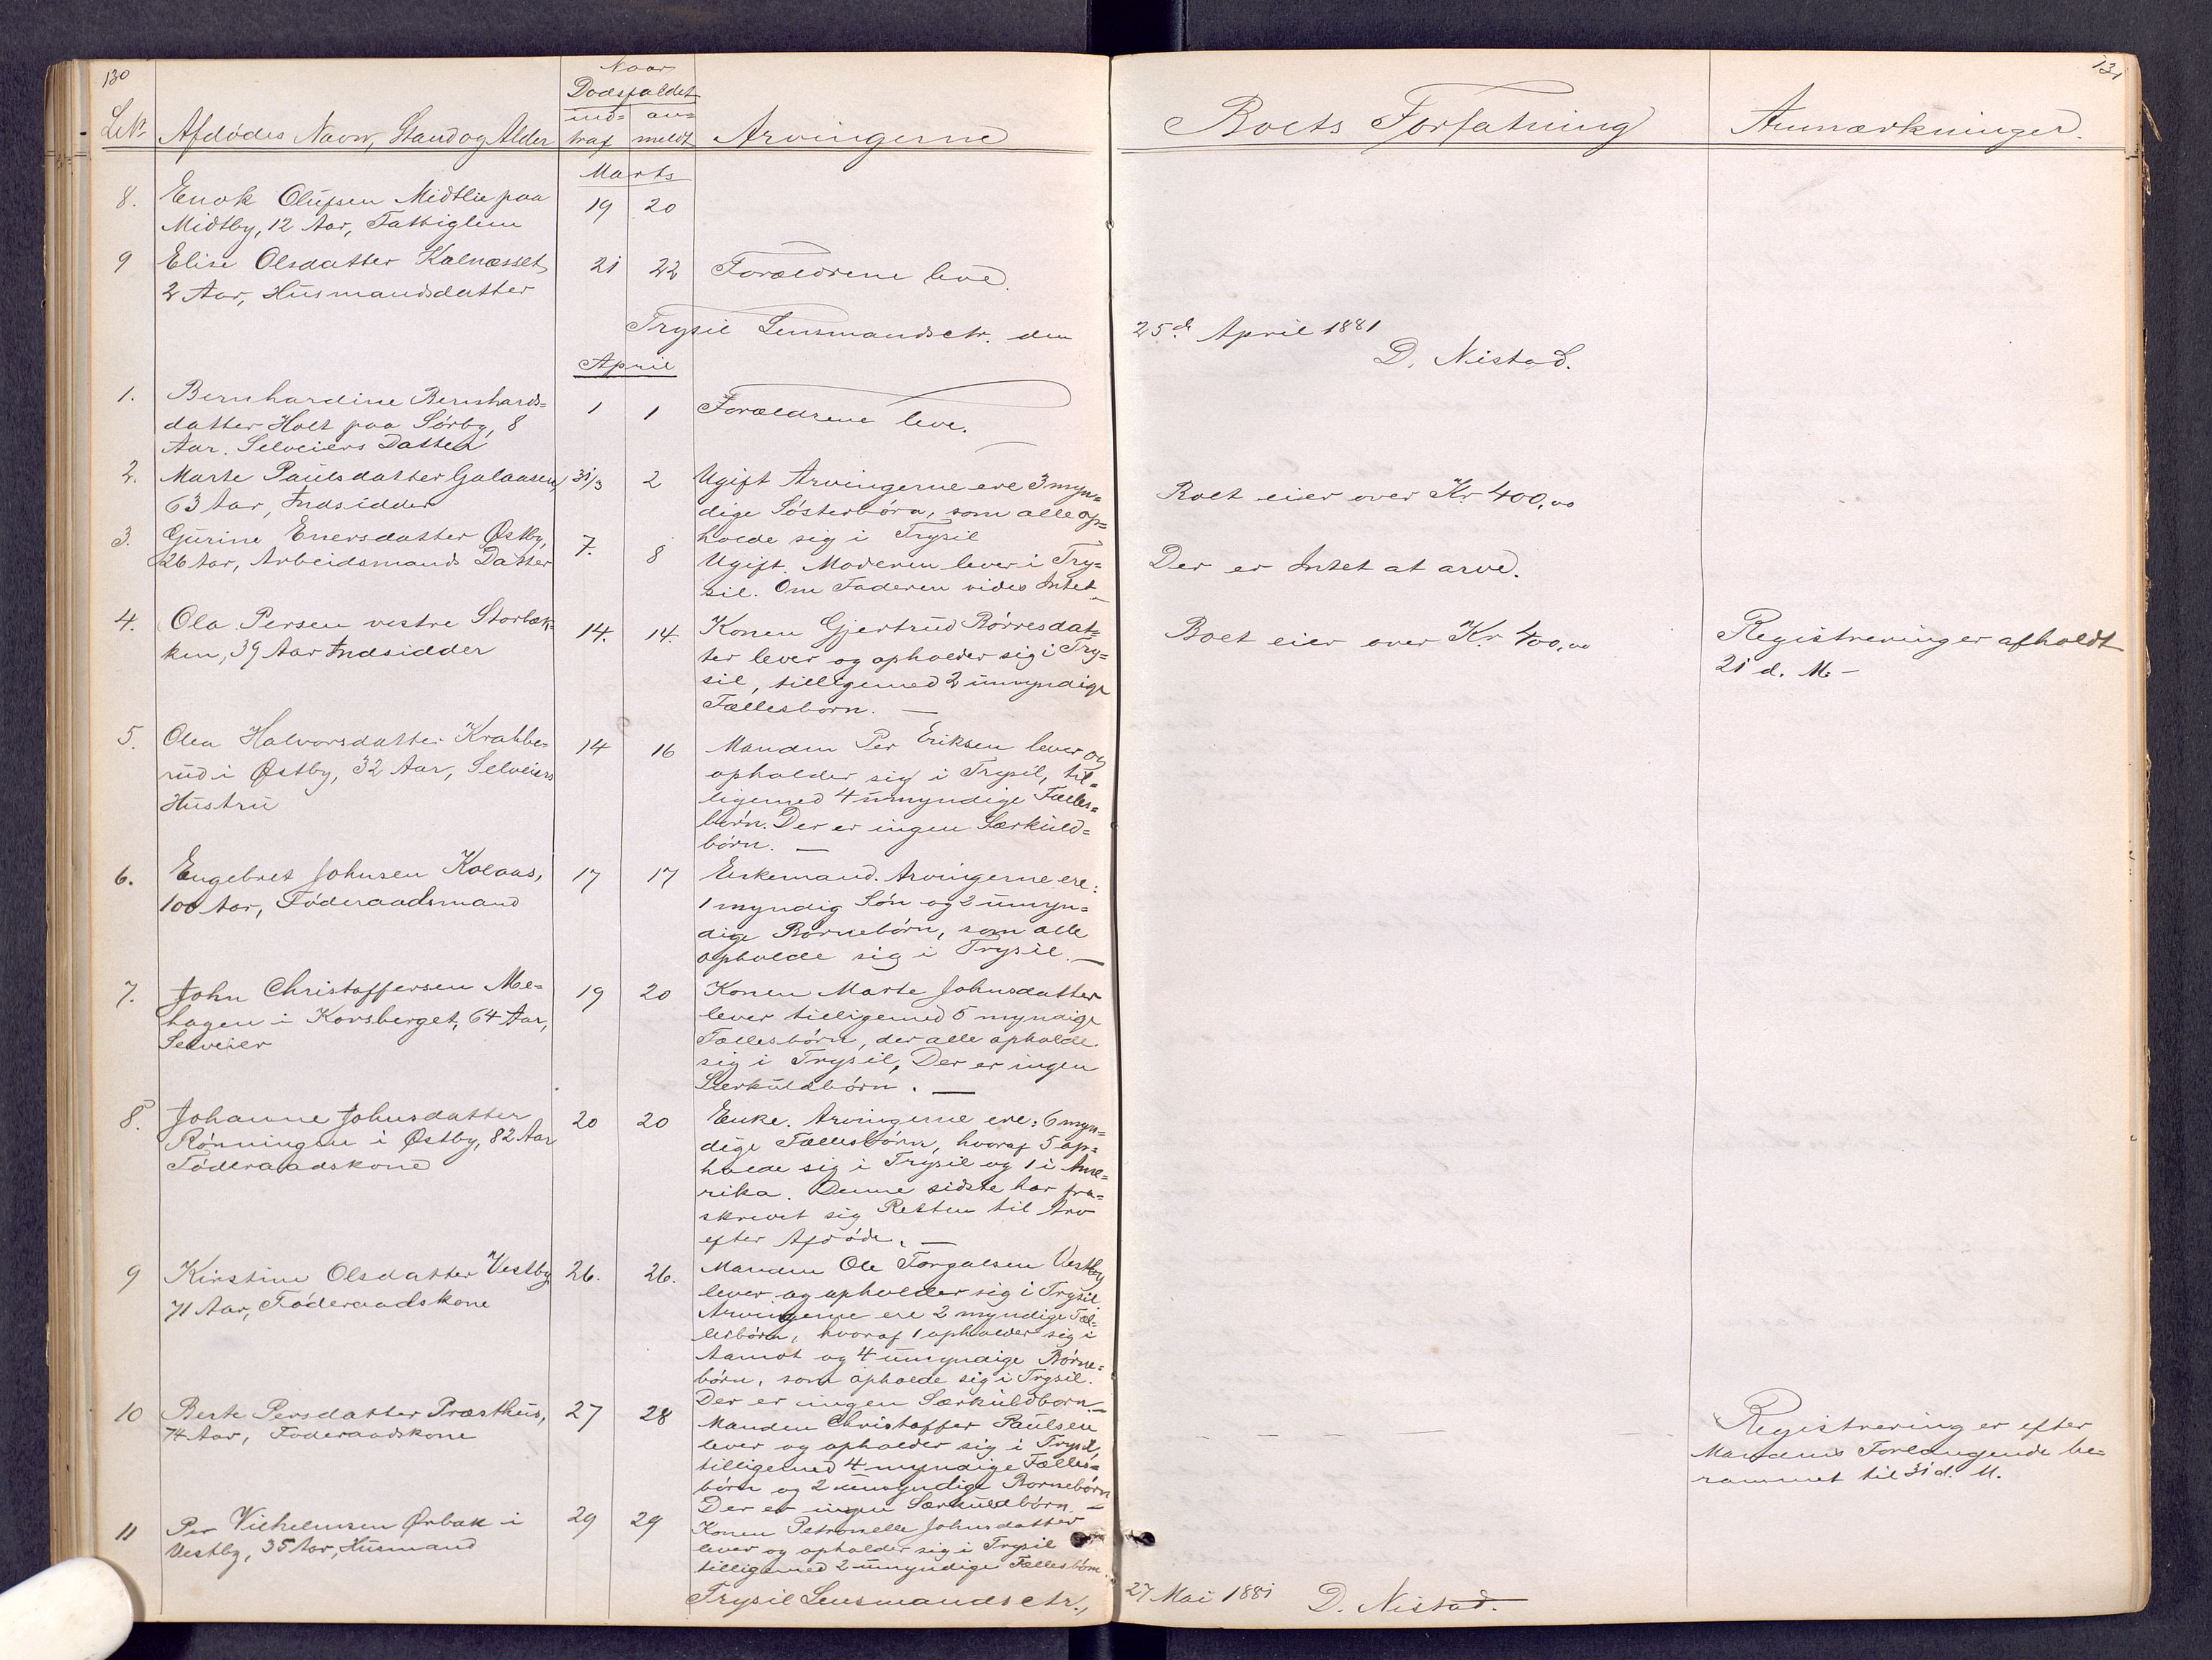 130
Naar
Dødsfaldet
LN. Afdødes Navn, Stand og Alder ind= traf an= meldt Arvingerne
Marts
8. Enok Olufsen Midtlie paa 19 20
Midtby, 12 Aar, Fattiglem
9 Elise Olsdatter Kalnæsset, 21 22 Forældrene leve.
2 Aar, Husmandsdatter
Trysil Lensmandsctr. den
April
1. Bernhardine Bernhards= 1 1 Forældrene leve.
datter Holt paa Sørby, 8
Aar. Selveiers Datter
2. Marte Paulsdatter Galaasen, 31/3 2 Ugift Arvingerne ere 3 myn=
63 Aar, Indsidder dige Søsterbørn, som alle op=
holde sig i Trysil
3. Gurine Enersdatter Østby, 7. 8 Ugift. Moderen lever i Try=
26 Aar, Arbeidsmands Datter sil. Om Faderen vides Intet
4. Ola Persen vestre Storbæk= 14. 14. Konen Gjertrud Børresdat=
ken, 39 Aar Indsidder ter lever og opholder sig i Try=
sil, tilligemed 2 umyndige
Fællesbørn. —
5. Olea Halvorsdatter Krabbe= 14 16 Manden Per Eriksen lever og
rud i Østby, 32 Aar, Selveiers opholder sig i Trysil, til=
Hustru ligemed 4 umyndige Fælles=
børn. Der er ingen Særkuld=
børn. —
6. Engebret Johnsen Kolaas, 17 17 Enkemand. Arvingerne ere:
100 Aar, Føderaadsmand 1 myndig Søn og 2 umyn=
dige Børnebørn, som alle
opholde sig i Trysil. —
7. John Christoffersen Mo= 19 20 Konen Marte Johnsdatter
hagen i Korsberget, 64 Aar, lever tilligemed 5 myndige
Selveier Fællesbørn, der alle opholde
sig i Trysil, Der er ingen
Særkuldbørn. —
8. Johanne Johnsdatter 20 20 Enke. Arvingerne ere: 6 myn=
Rønningen i Østby, 82 Aar dige Fællesbørn, hvoraf 5 op=
Føderaadskone holde sig i Trysil og 1 i Ame=
rika. Denne sidste har fra=
skrevet sig Retten til Arv
efter Afdøde. —
9 Kirstine Olsdatter Vestby 26. 26. Manden Ole Torgalsen Vestby
71 Aar, Føderaadskone lever og opholder sig i Trysil
Arvingerne ere 2 myndige Fæl=
lesbørn, hvoraf 1 opholder sig i
Aamot og 4 umyndige Børne=
børn, som opholde sig i Trysil.
Der er ingen Særkuldbørn. —
10 Berte Persdatter Præsthus, 27 28 Manden Christoffer Paulsen
74 Aar, Føderaadskone lever og opholder sig i Trysil,
tilligemed 4 myndige Fælles=
børn og 2 umyndige Børnebørn
Der er ingen Særkuldbørn. —
11 Per Vilhelmsen Ørbæk i 29 29 Konen Petronelle Johnsdatter
Vestby, 35 Aar, Husmand lever og opholder sig i Trysil
tilligemed 2 umyndige Fællesbørn.
Trysil Lensmandsctr.,
131
Boets Forfatning Anmærkninger.
25de April 1881
D. Nistad.
Boet eier over Kr 400,00
Der er Intet at arve.
Boet eier over Kr. 400,00 Registrering er afholdt
21 d. M. —
Registrering er efter
Mandens Forlangende be=
rammet til 31 d. M.
27 Mai 1881 D. Nistad.